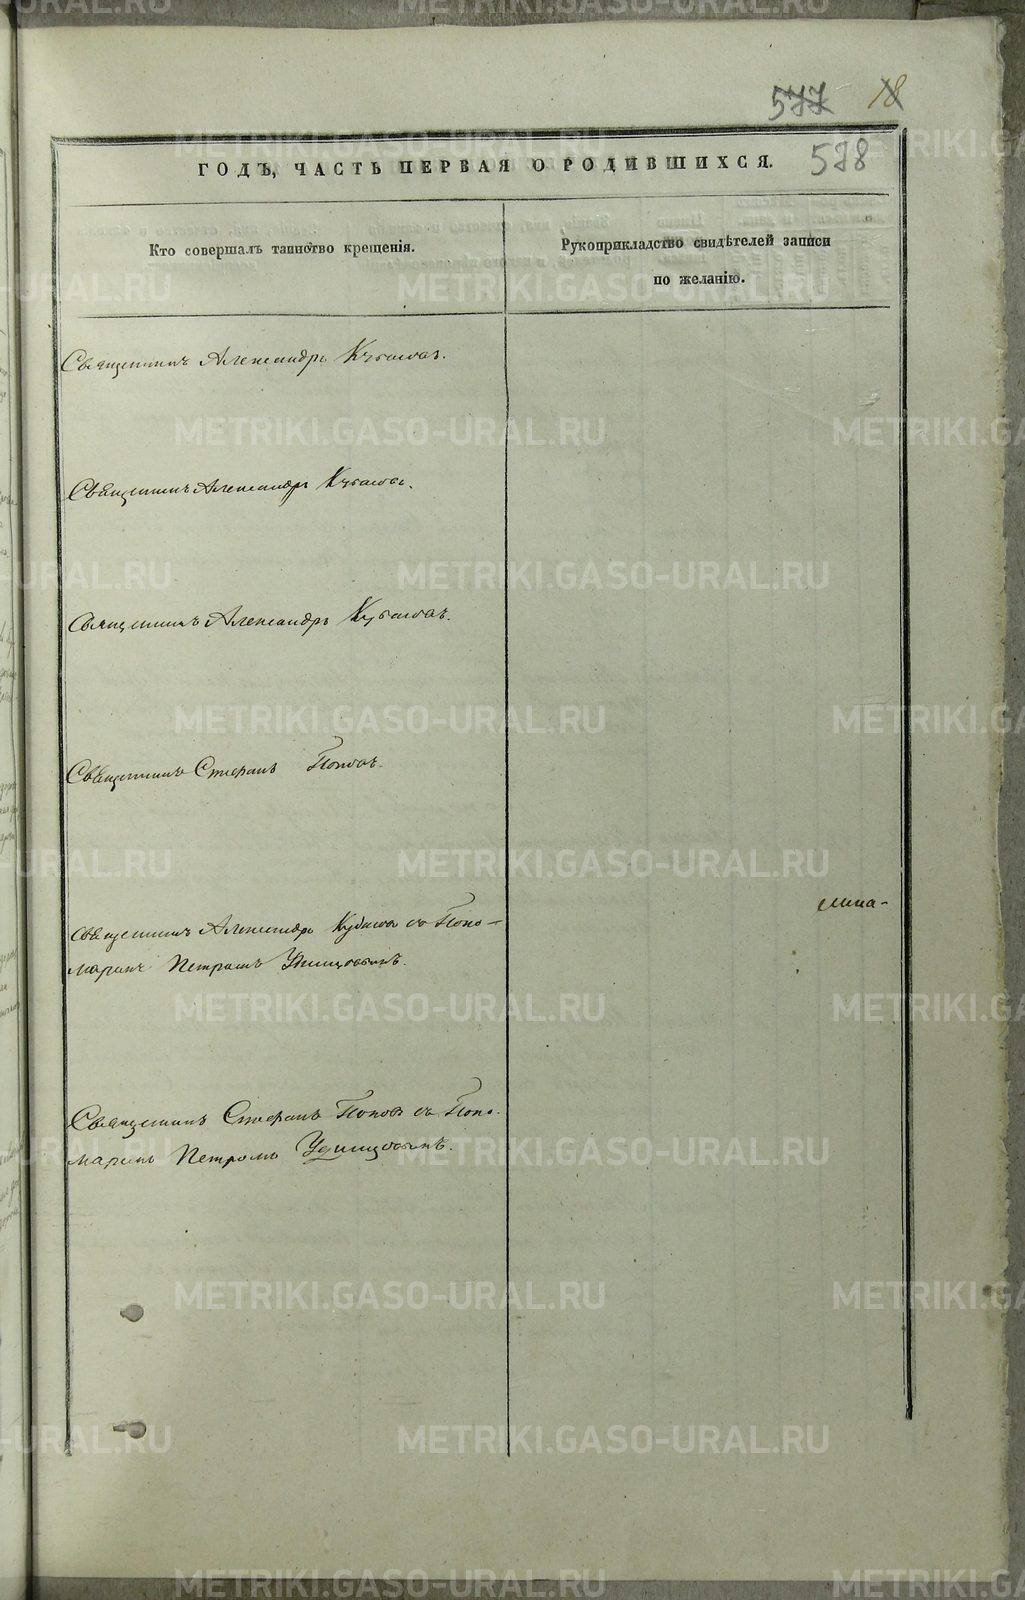 577 18
578
ГОДЪ, ЧАСТЬ ПЕРВАЯ О РОДИВШИХСЯ.
Кто совершалъ таинство крещенія.
Рукоприкладство свидѣтелей записи
по желанію.
Священникъ Александръ Кубасовъ.
Священникъ Александръ Кубасовъ.
Священникъ Александръ Кубасовъ.
Священникъ Стефанъ Поповъ.
Священникъ Александръ Кубасовъ съ Поно-
маремъ Петромъ Удинцовымъ.
Священникъ Стефанъ Поповъ съ Поно-
маремъ Петромъ Удинцовымъ.
METRIKI.GASO-URAL.RU